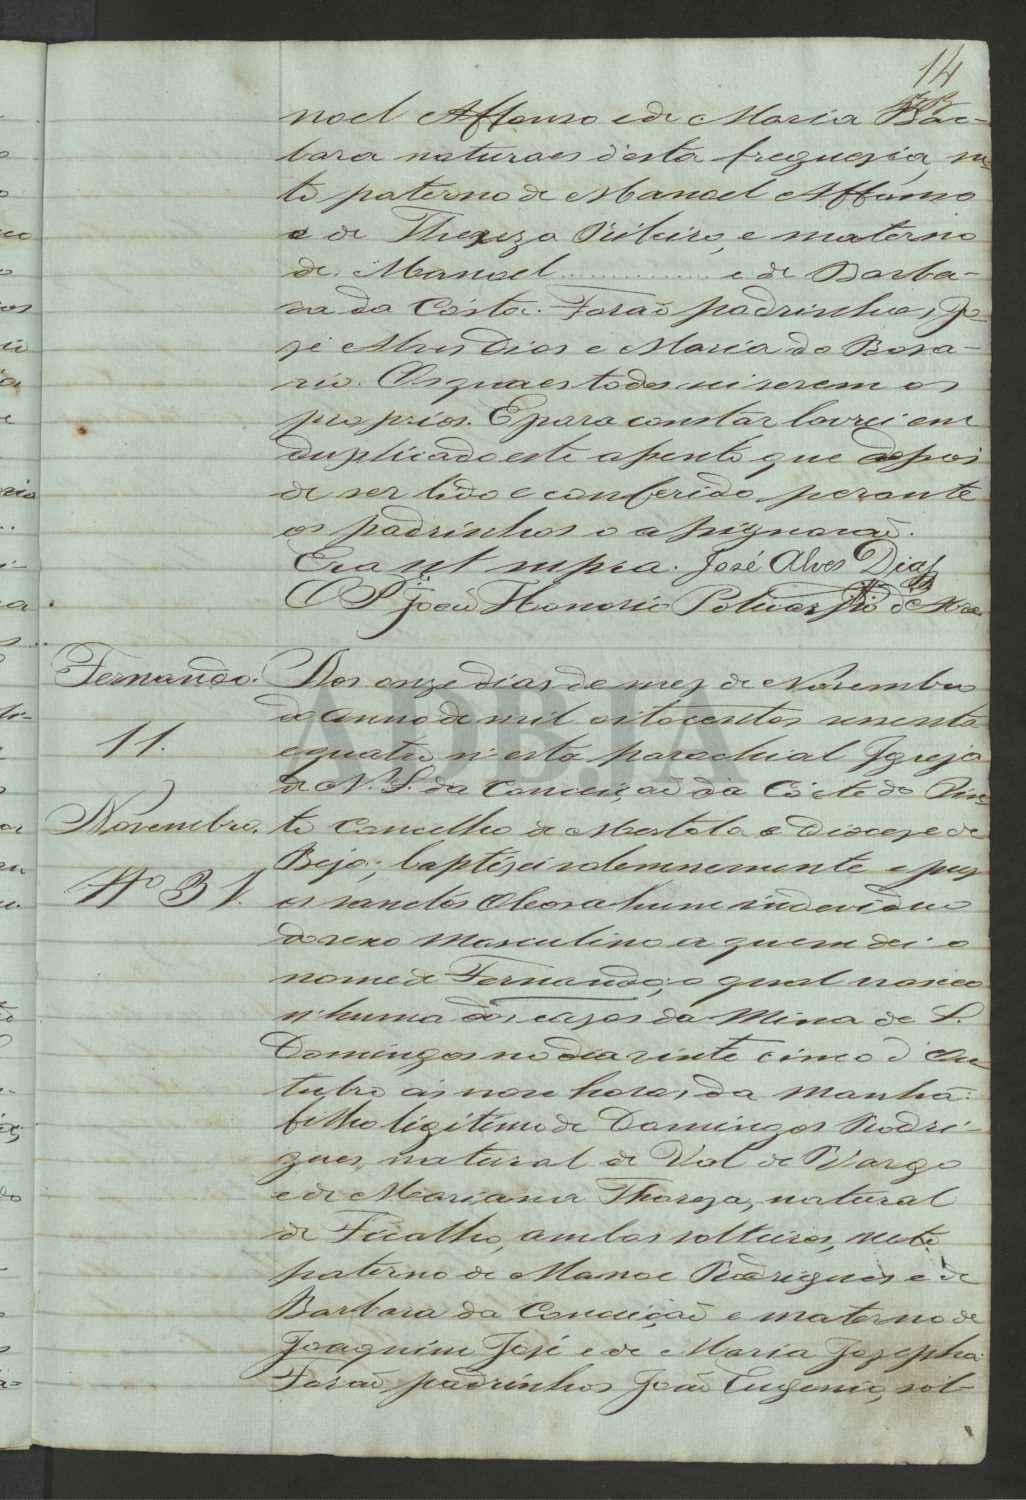 14
noel Affonso e de Maria Bar-
bara naturaes d'esta freguesia, ne-
to paterno de Manoel Affonso
e de Thereza Ribeiro, e materno
de Manoel ............... e de Barba-
ra da Costa. Forão padrinhos, Jo-
zé Alves Dias e Maria do Rosa-
rio. Os quaes todos sei serem os
proprios. E para constar lavrei em
duplicado este assento que depois
de ser lido e conferido perante
os padrinhos o assignarão.
Era ut supra. José Alves Dias
O P. João Honorio Policarpio de
Fernando. Aos onze dias de mez de Novembro
do anno de mil oitocentos sesenta
11. e quatro n'esta parochial Igreja
de N. S. da Conceição da Côrte do Pin-
Novembro. to Concelho de Mertola e Diocese de
Beja; baptizei solemnemente e puz
Nº 31. os sanctos Oleos a hum individuo
do sexo masculino a quem dei o
nome de Fernando, o qual nasceo
n'huma das cazas da Mina de S.
Domingos no dia vinte cinco d'Ou
tubro ás nove horas da manhã:
filho ligitimo de Domingos Rodri-
gues, natural de Val de Vargo
e de Mariana Thereza, natural
de Ficalho, ambos solteiros, neto
paterno de Manoe Rodrigues e de
Barbara da Conceição e materno de
Joaquim José e de Maria Josepha.
Forão padrinhos João Eugenio, sol-
ADBJA